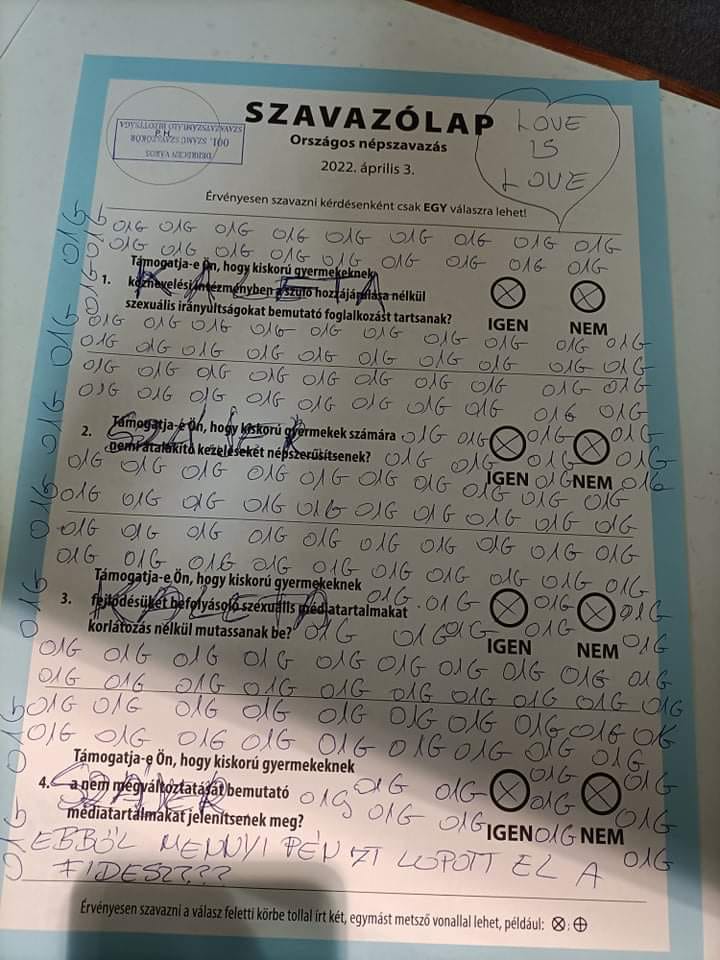 SZAVAZÓLAP
Országos népszavazás
2022. április 3.
DEBRECEN VÁROS
001. SZÁMÚ SZAVAZÓKÖR
P.H.
SZAVAZATSZÁMLÁLÓ BIZOTTSÁGA
LOVE
IS
LOVE
Érvényesen szavazni kérdésenként csak EGY válaszra lehet!
O1G O1G O1G O1G O1G O1G O1G O1G O1G
O1G O1G O1G O1G O1G O1G O1G O1G O1G
1. Támogatja-e Ön, hogy kiskorú gyermekeknek
köznevelési intézményben a szülő hozzájárulása nélkül
szexuális irányultságokat bemutató foglalkozást tartsanak?
KALETA
IGEN NEM
O1G O1G O1G O1G O1G O1G O1G O1G O1G O1G
O1G O1G O1G O1G O1G O1G O1G O1G O1G O1G
O1G O1G O1G O1G O1G O1G O1G O1G O1G O1G
O1G O1G O1G O1G O1G O1G O1G O1G O1G O1G
2. Támogatja-e Ön, hogy kiskorú gyermekek számára
nemi átalakító kezeléseket népszerűsítsenek?
SZÁJER
O1G O1G O1G O1G
O1G O1G O1G O1G
IGEN O1G NEM O1G
O1G O1G O1G O1G O1G O1G O1G O1G O1G O1G
O1G O1G O1G O1G O1G O1G O1G O1G O1G O1G
O1G O1G O1G O1G O1G O1G O1G O1G O1G O1G
O1G O1G O1G O1G O1G O1G O1G O1G O1G O1G
3. Támogatja-e Ön, hogy kiskorú gyermekeknek
fejlődésüket befolyásoló szexuális médiatartalmakat
korlátozás nélkül mutassanak be?
KALETA
O1G O1G O1G O1G
O1G O1G O1G O1G O1G
IGEN NEM
O1G O1G O1G O1G O1G O1G O1G O1G O1G O1G
O1G O1G O1G O1G O1G O1G O1G O1G O1G O1G
O1G O1G O1G O1G O1G O1G O1G O1G O1G O1G
O1G O1G O1G O1G O1G O1G O1G O1G O1G O1G
4. Támogatja-e Ön, hogy kiskorú gyermekeknek
a nem megváltoztatását bemutató
médiatartalmakat jelenítsenek meg?
SZÁJER
O1G O1G O1G O1G
O1G O1G O1G O1G O1G
IGEN O1G NEM O1G
EBBŐL MENNYI PÉNZT LOPOTT EL A
FIDESZ???
Érvényesen szavazni a válasz feletti körbe tollal írt két, egymást metsző vonallal lehet, például:
O1G O1G O1G O1G O1G O1G O1G O1G O1G